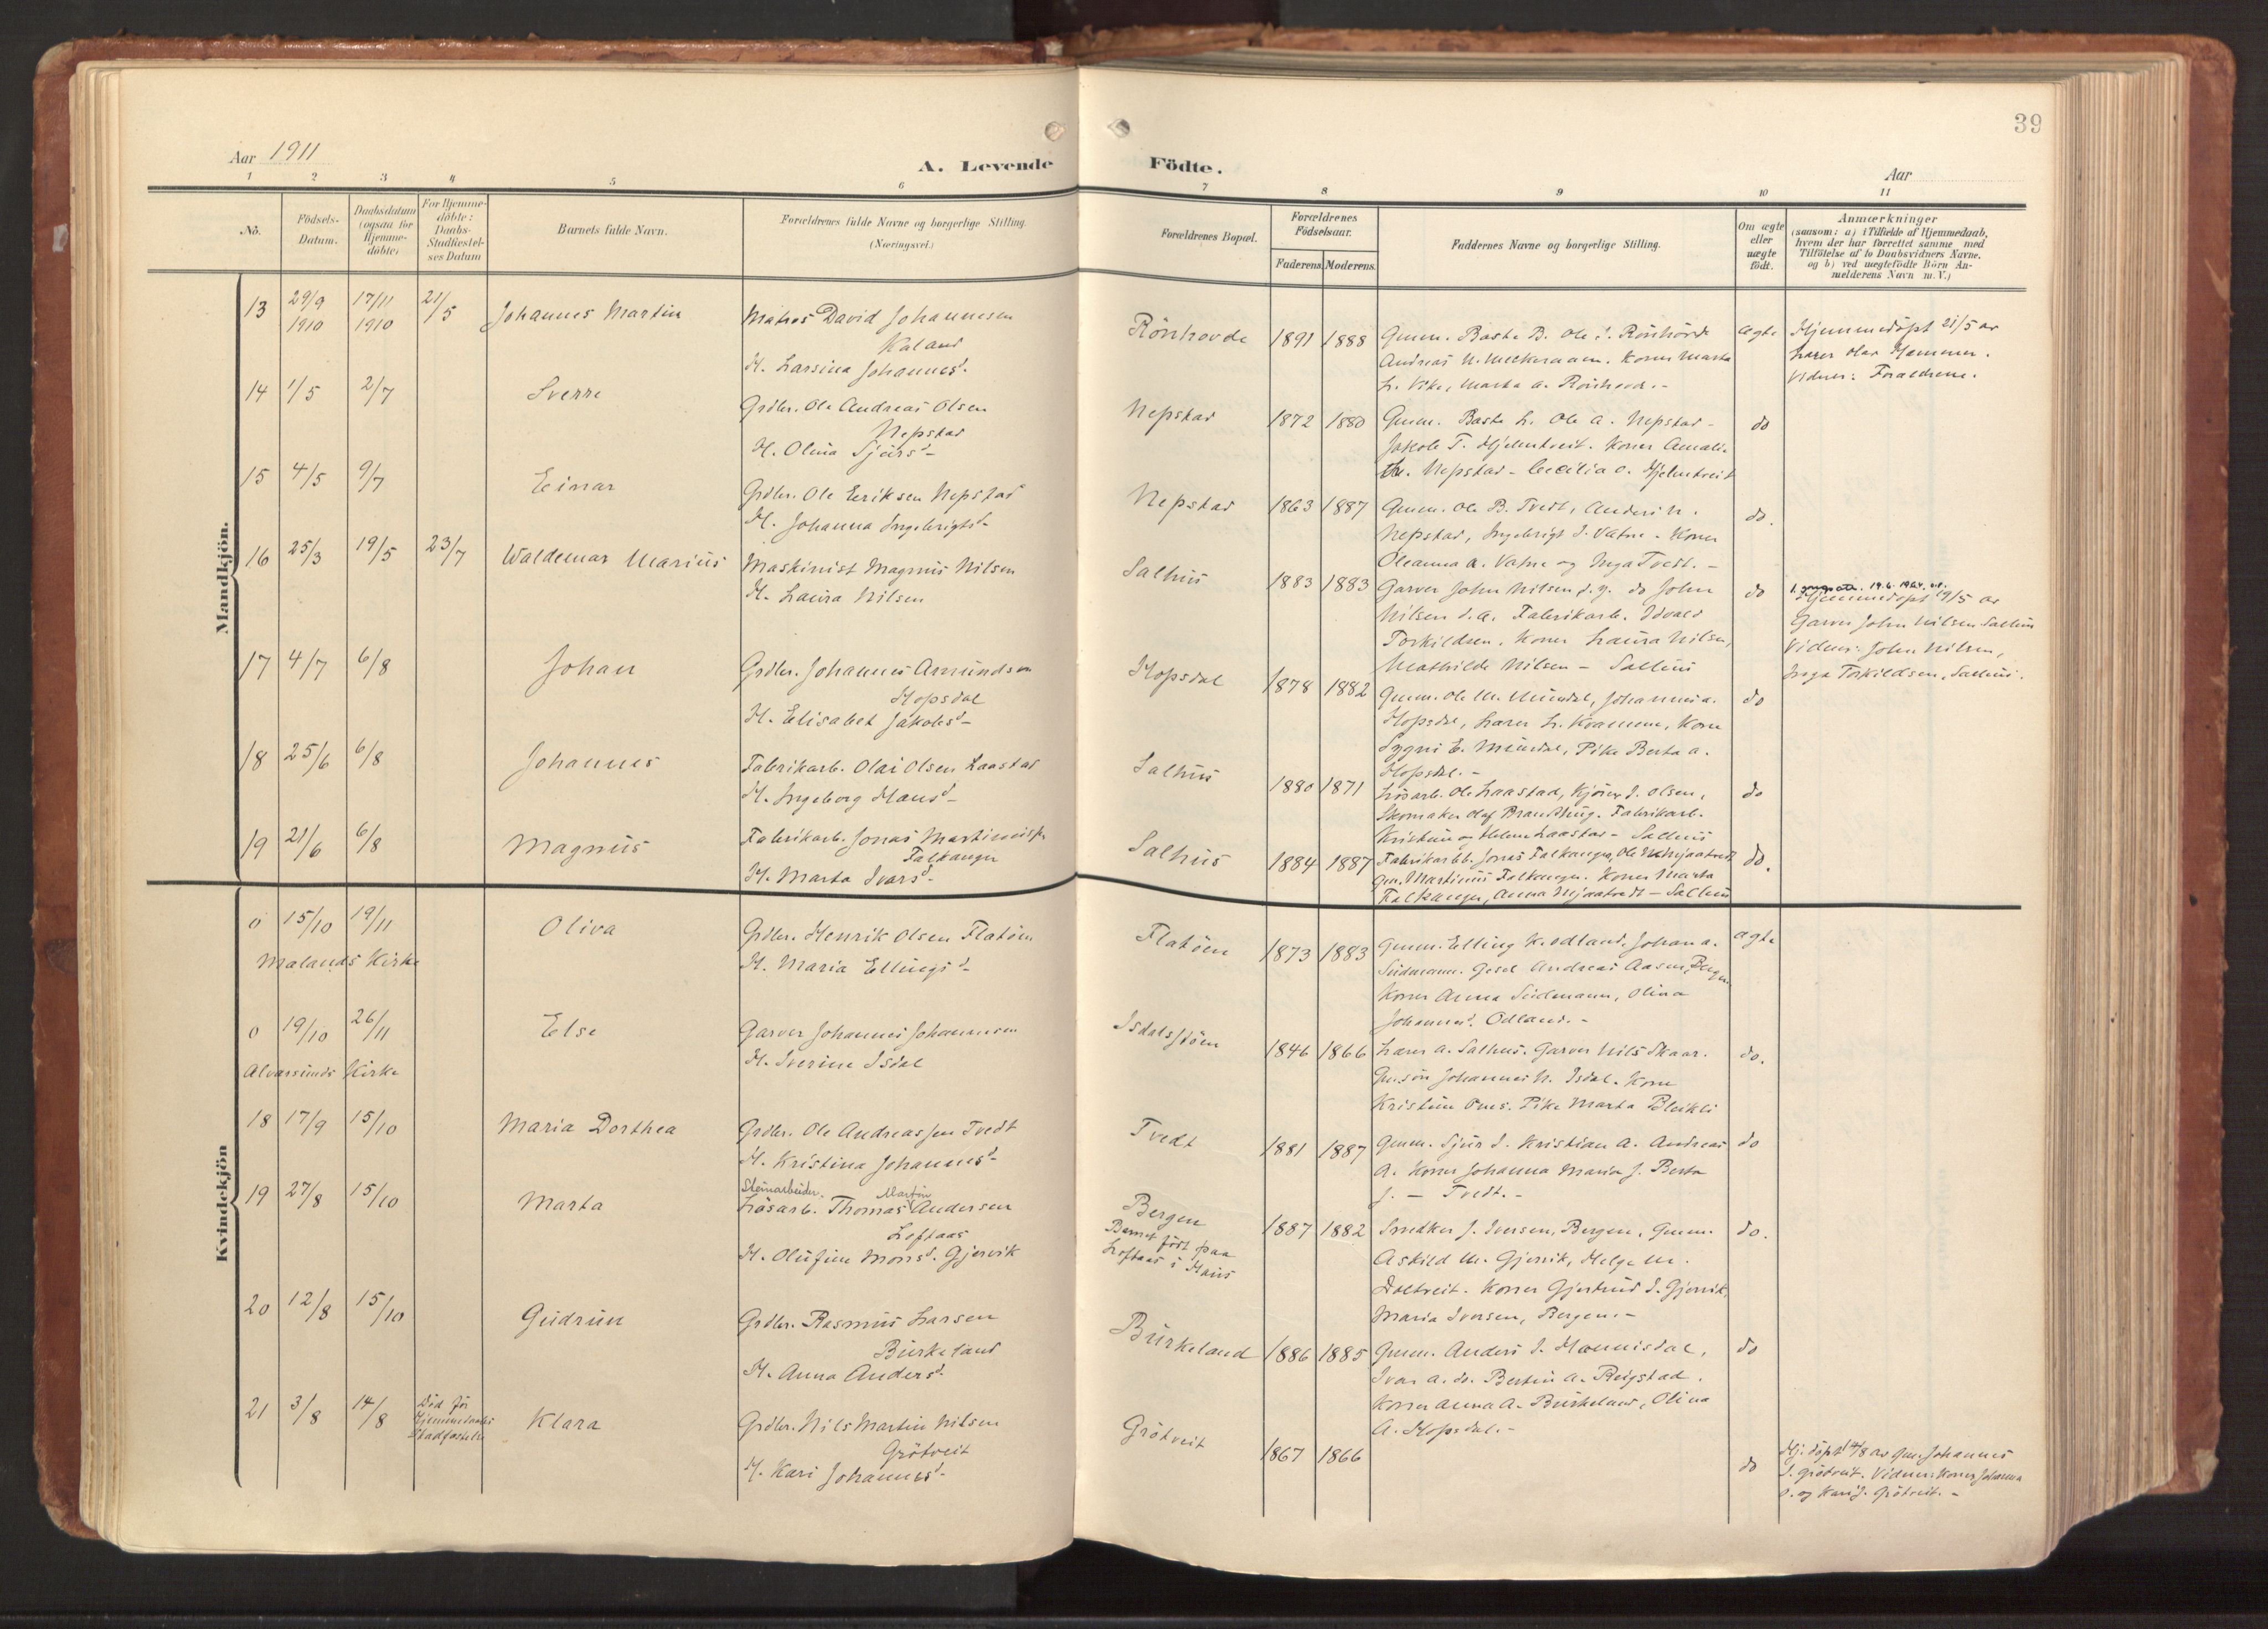 39
Aar 1911
A. Levende Födte.
Aar
1 2 3 4 5 6 7 8 9 10 11
No.
Födsels-Datum.
Daabsdatum (ogsaa for Hjemmedöbte)
For Hjemmedöbte: Daabs-Stadfæstelses Datum
Barnets fulde Navn.
Forældrenes fulde Navne og borgerlige Stilling. (Næringsvei.)
Forældrenes Bopæl.
Forældrenes Födselsaar.
Faderens. Moderens.
Faddernes Navne og borgerlige Stilling.
Om ægte eller uægte födt.
Anmærkninger
(saasom: a) i Tilfælde af Hjemmedaab,
hvem der har forrettet samme med
Tilföielse af to Daabsvidners Navne.
og b) ved uægtefödte Börn An-
melderens Navn m. V.)
Mandkjön.
13 29/9 1910 17/11 1910 21/5 Johannes Martin
Matros David Johannesen
Kaland
H. Larsina Johannesd.
Rönhovde 1891 1888
Gmm. Baste B. Ole I. Rönhovd
Andreas N. Kone Marta
L. Vike, Marta A. Rönhovd. -
ægte
Hjemmedöpt 21/5 av
Lærer Olav Hammer.
Vidner: Forældrene.
14 1/5 2/7 Sverre
Grdbr. Ole Andreas Olsen
Nepstad
H. Olina Sjursd -
Nepstad 1872 1880
Gmm. Baste L. Ole A. Nepstad -
Jakob T. Hjelmtveit. Koner Amalie
Nepstad - Cecilia O. Hjelmtveit
do
15 4/5 9/7 Einar
Grdbr. Ole Eriksen Nepstad
H. Johanna Ingebrigtsd -
Nepstad 1863 1887
Gmm. Ole B. Tvedt, Anders N.
Nepstad, Ingebrigt I. Vatne - Koner
Oleanna A. Vatne og Inga Tvedt. -
do.
16 25/3 19/5 23/7 Waldemar Marius
Maskinist Magnus Nilsen
H. Laura Nilsen
Salhus 1883 1883
Garver John Nilsen d.y. do John
Nilsen d.æ. Fabrikarb. Edvald
Torkildsen. Koner Laura Nilsen,
Mathilde Nilsen - Salhus
do
Hjemmedöpt 19/5 av
Garver John Nilsen Salhus
Vidner: John Nilsen,
Inga Torkildsen, Salhus.
17 4/7 6/8 Johan
Grdbr. Johannes Amundsen
Hopsdal
H. Elisabet Jakobsd -
Hopsdal 1878 1882
Gmm. Ole M. Mundal, Johannes A.
Hopsdal, Lærer L. Kvamme, Kone
Sygni E. Mundal, Pike Berta A.
Hopsdal. -
do
18 25/6 6/8 Johannes
Fabrikarb. Olai Olsen Laastad
H. Ingeborg Hansd -
Salhus 1880 1871
Lösarb. Ole Laastad, Olsen,
Skomaker Olaf Fabrikarb.
Kristine og Helene Laastad - Salhus
do
19 21/6 6/8 Magnus
Fabrikarb. Jonas Martinusen
Falkanger
H. Marta Ivarsd -
Salhus 1884 1887
Fabrikarb. Jonas Falkanger, Ole Mjaatvedt
Gm. Martinus Falkanger. Koner Marta
Falkanger, Anna Mjaatvedt - Salhus
do.
Kvindekjön
0 15/10 19/11 Oliva
Mælands Kirke
Grdbr. Henrik Olsen Flatöen
H. Maria Ellingsd -
Flatöen 1873 1883
Gmm. Elling K. Odland. Johan A.
Sudmann. Gesel Andreas Aasen, Bergen
Koner Anna Sudmann, Olina
Johannesd. Odland. -
ægte
0 19/10 26/11 Else
Alversunds Kirke
Garver Johannes Johannesen
H. Iverine Isdal
Isdalstöen 1846 1866
Lærer A. Salhus. Garver Nils Skaar.
Gm.sön Johannes N. Isdal. Kone
Kristine Ones. Pike Marta Bleikli
do.
18 17/9 15/10 Maria Dorthea
Grdbr. Ole Andreassen Tvedt
H. Kristina Johannesd -
Tvedt 1881 1887
Gmm. Sjur I. Kristian A. Andreas
A. Koner Johanna Maria J. Berta
J. - Tvedt. -
do
19 27/8 15/10 Marta
Stenarbeider. Martin
Lösarb. Thomas Andersen
Loftaas
H. Olufine Monsd. Gjervik
Bergen
Barnet födt paa
Loftaas i Haus
1887 1882
Snedker J. Iversen, Bergen, Gmm.
Askild M. Gjervik, Helge M.
Koner Gjertrud I. Gjervik,
Maria Iversen, Bergen. -
do.
20 12/8 15/10 Gudrun
Grdbr. Rasmus Larsen
Burkeland
H. Anna Andersd.
Burkeland 1886 1885
Gmm. Anders I. Hannisdal,
Ivar A. do. Bertin A. Reigstad.
Koner Anna A. Burkeland, Olina
A. Hopsdal. -
do
21 3/8 14/8 Död för Hjemmedaabs Stadfæstelse Klara
Grdbr. Nils Martin Nilsen
Grötveit
H. Kari Johannesd -
Grötveit 1867 1866
do
Hj. döpt 14/8 av Gm. Johannes
I. Grötveit. Vidner: Koner Johanna
O. og Kari J. Grötveit. -